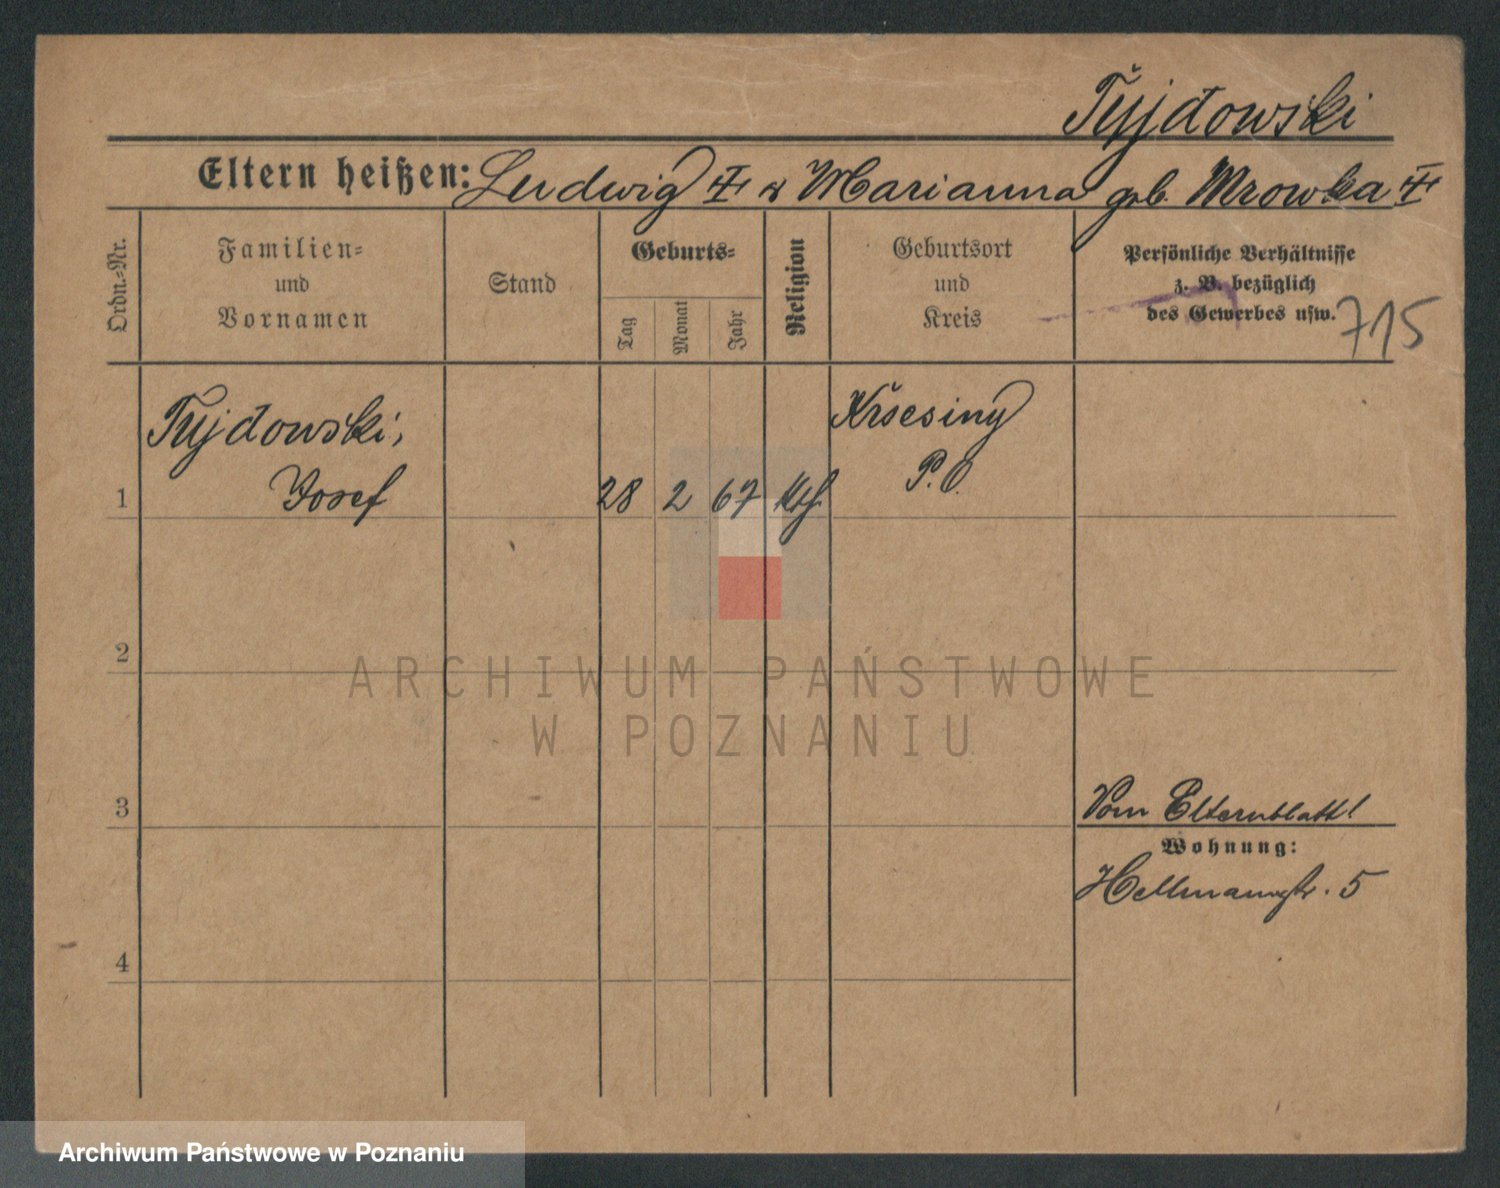 Tyjdowski
Eltern heißen: Ludwig ‡ u Marianna geb. Mrowka ‡
Ordn.-Nr.
Familien-
und
Vornamen
Stand
Geburts-
Tag
Monat
Jahr
Religion
Geburtsort
und
Kreis
Persönliche Verhältnisse
z. B. bezüglich
des Gewerbes usw.
715
Tyjdowski,
Josef
1
28 2 67 kth
Kršesiny
P.O.
2
3
Vom Elternblatt!
Wohnung:
Hellmannstr. 5
4
ARCHIWUM PAŃSTWOWE
W POZNANIU
Archiwum Państwowe w Poznaniu